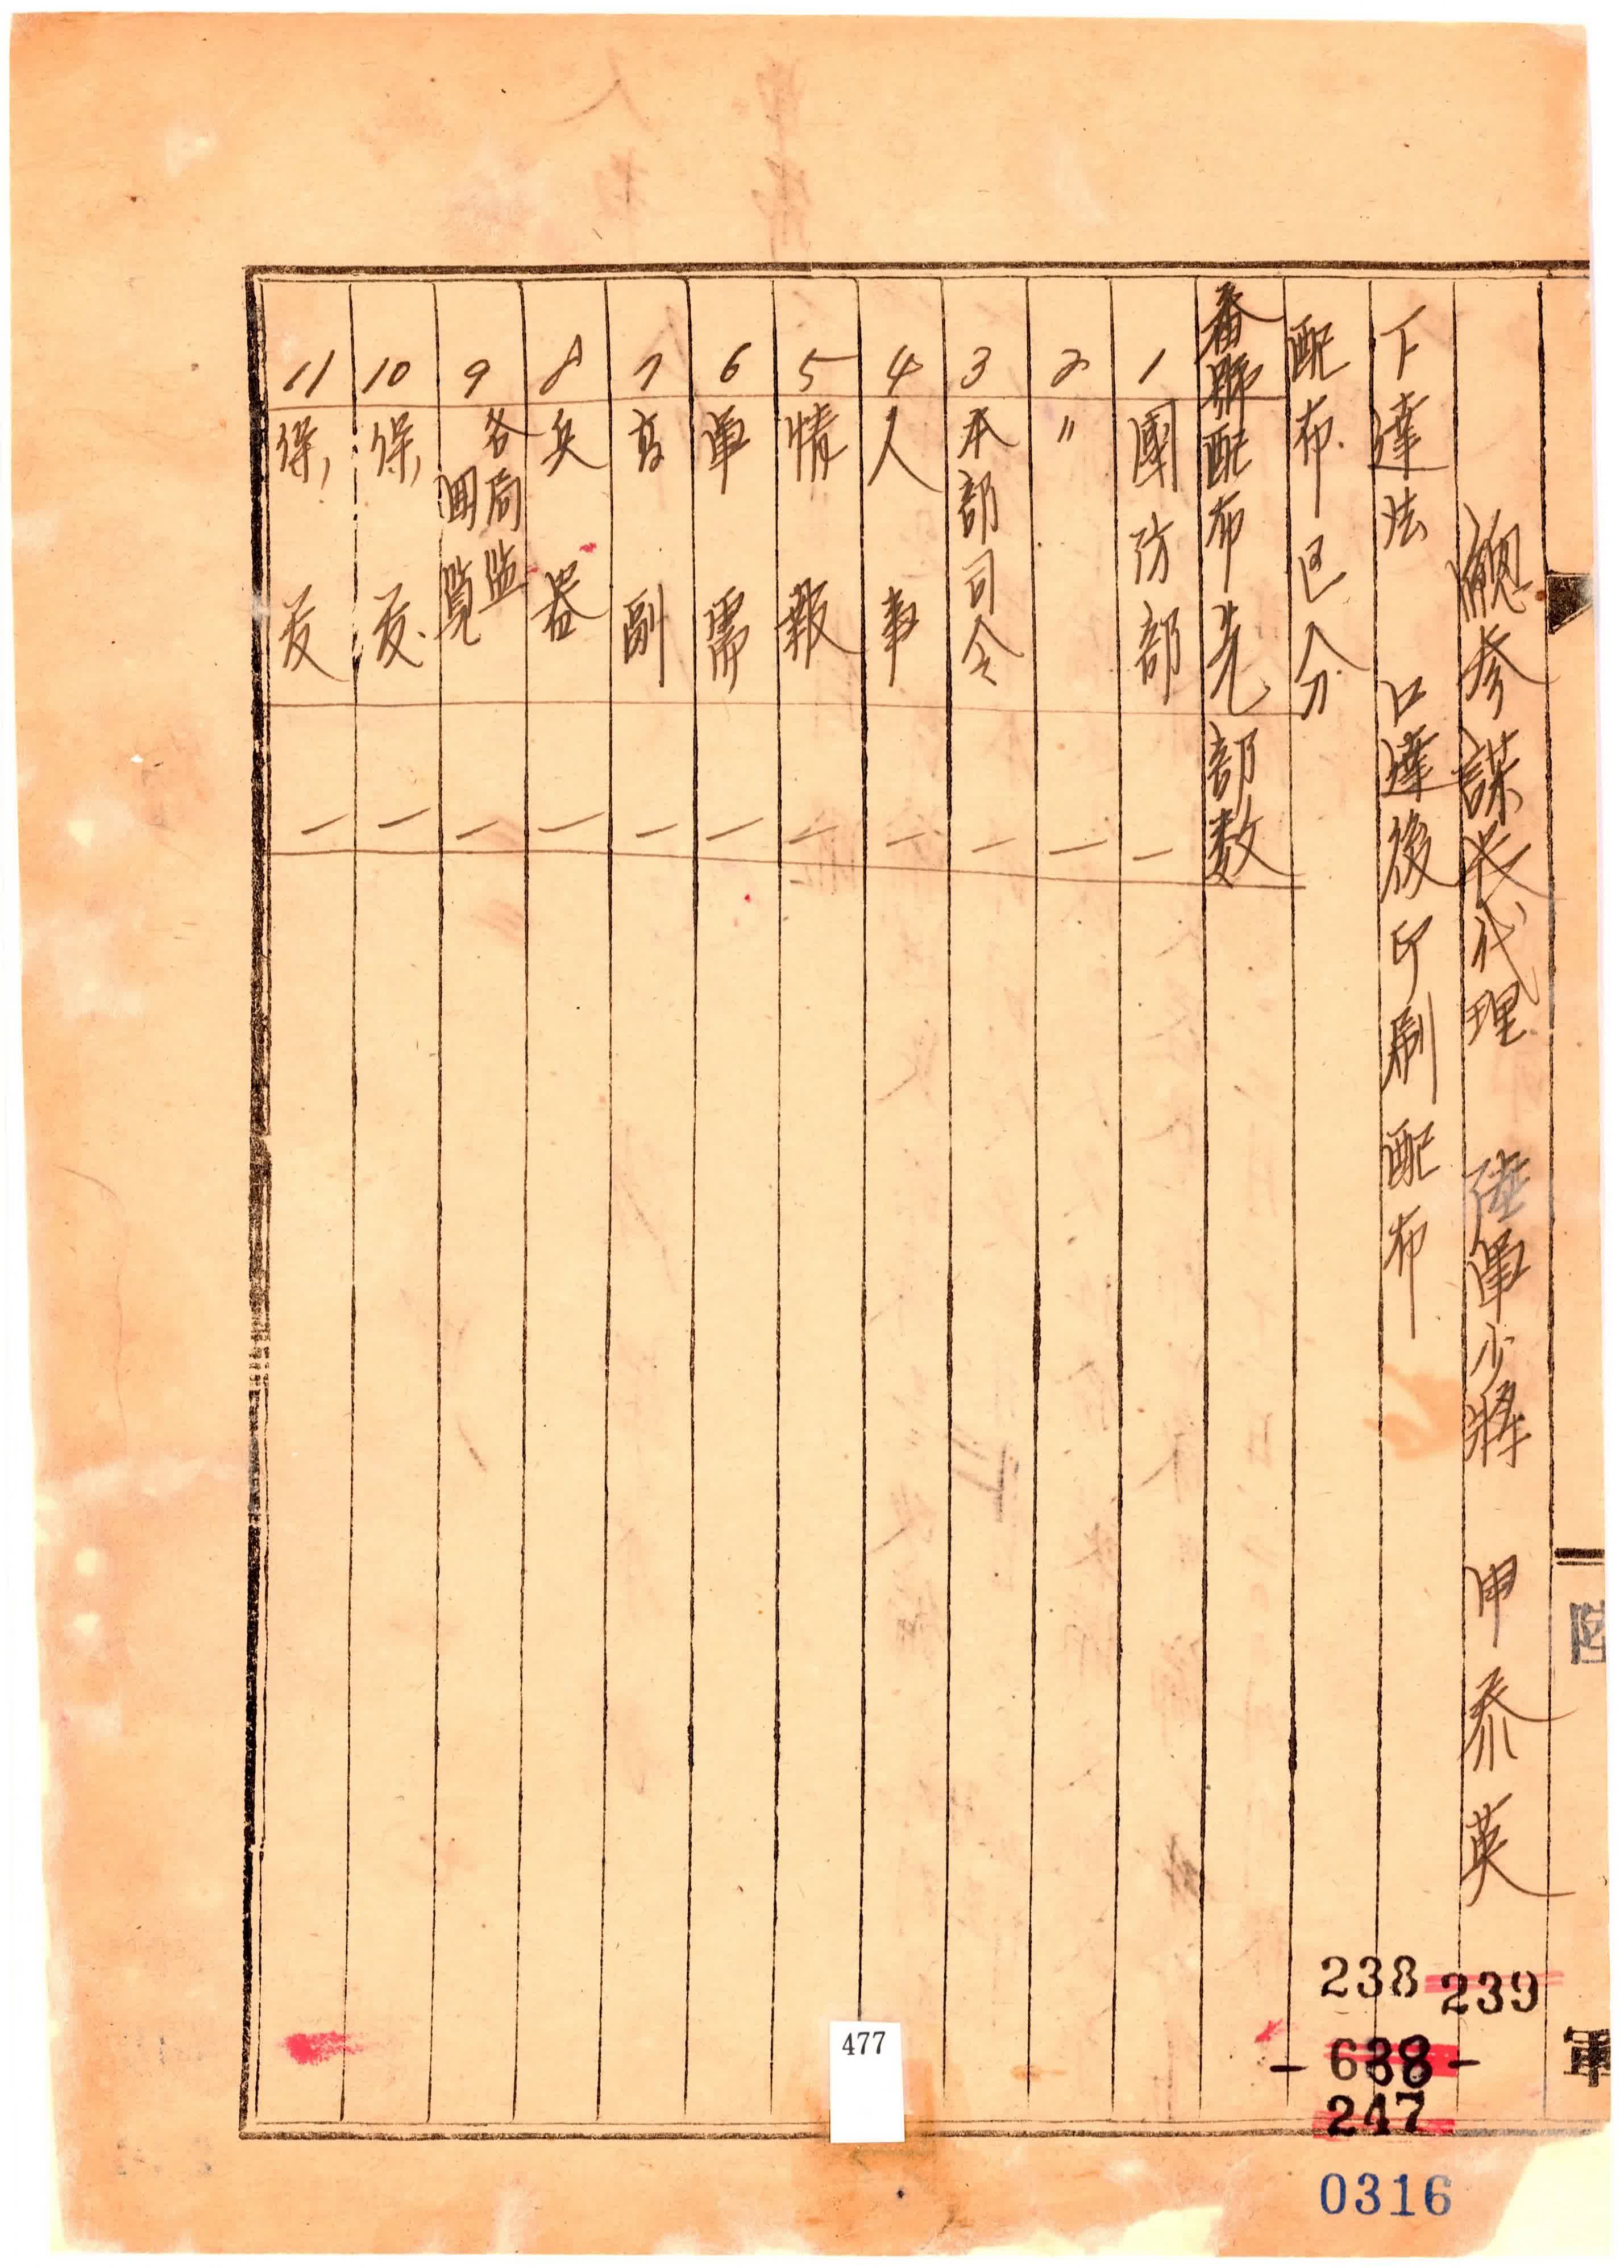 總參謀長代理 陸軍少將 申泰英
下達法 口達後印刷配布
配布区分
番號 配布先 部数
1 國防部 一
2 〃 一
3 本部司令 一
4 人事 一
5 情報 一
6 軍需 一
7 高副 一
8 兵器 一
9 各局監回覧 一
10 保, 友 一
11 保, 友 一
陸
軍
238 239
- 638 -
247
0316
477